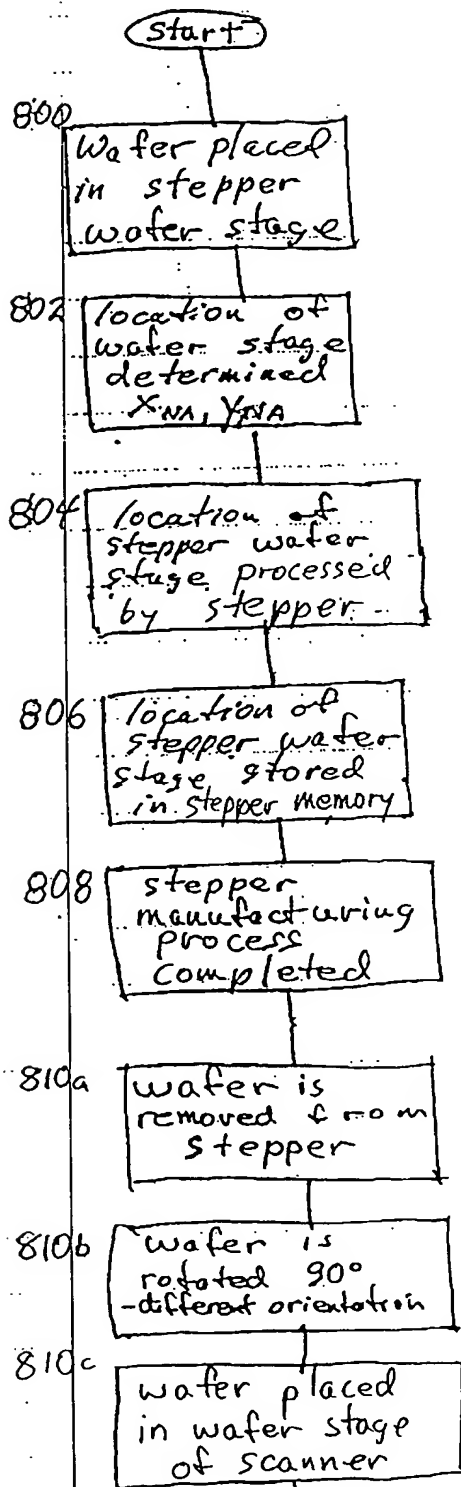 Start
800
Wafer placed
in stepper
wafer stage
802
location of
wafer stage
determined
XNA, YNA
804
location of
stepper wafer
stage processed
by stepper
806
location of
stepper wafer
stage stored
in stepper memory
808
stepper
manufacturing
process
completed
810a
wafer is
removed from
stepper
810b
wafer is
rotated 90°
-different orientation
810c
wafer placed
in wafer stage
of scanner